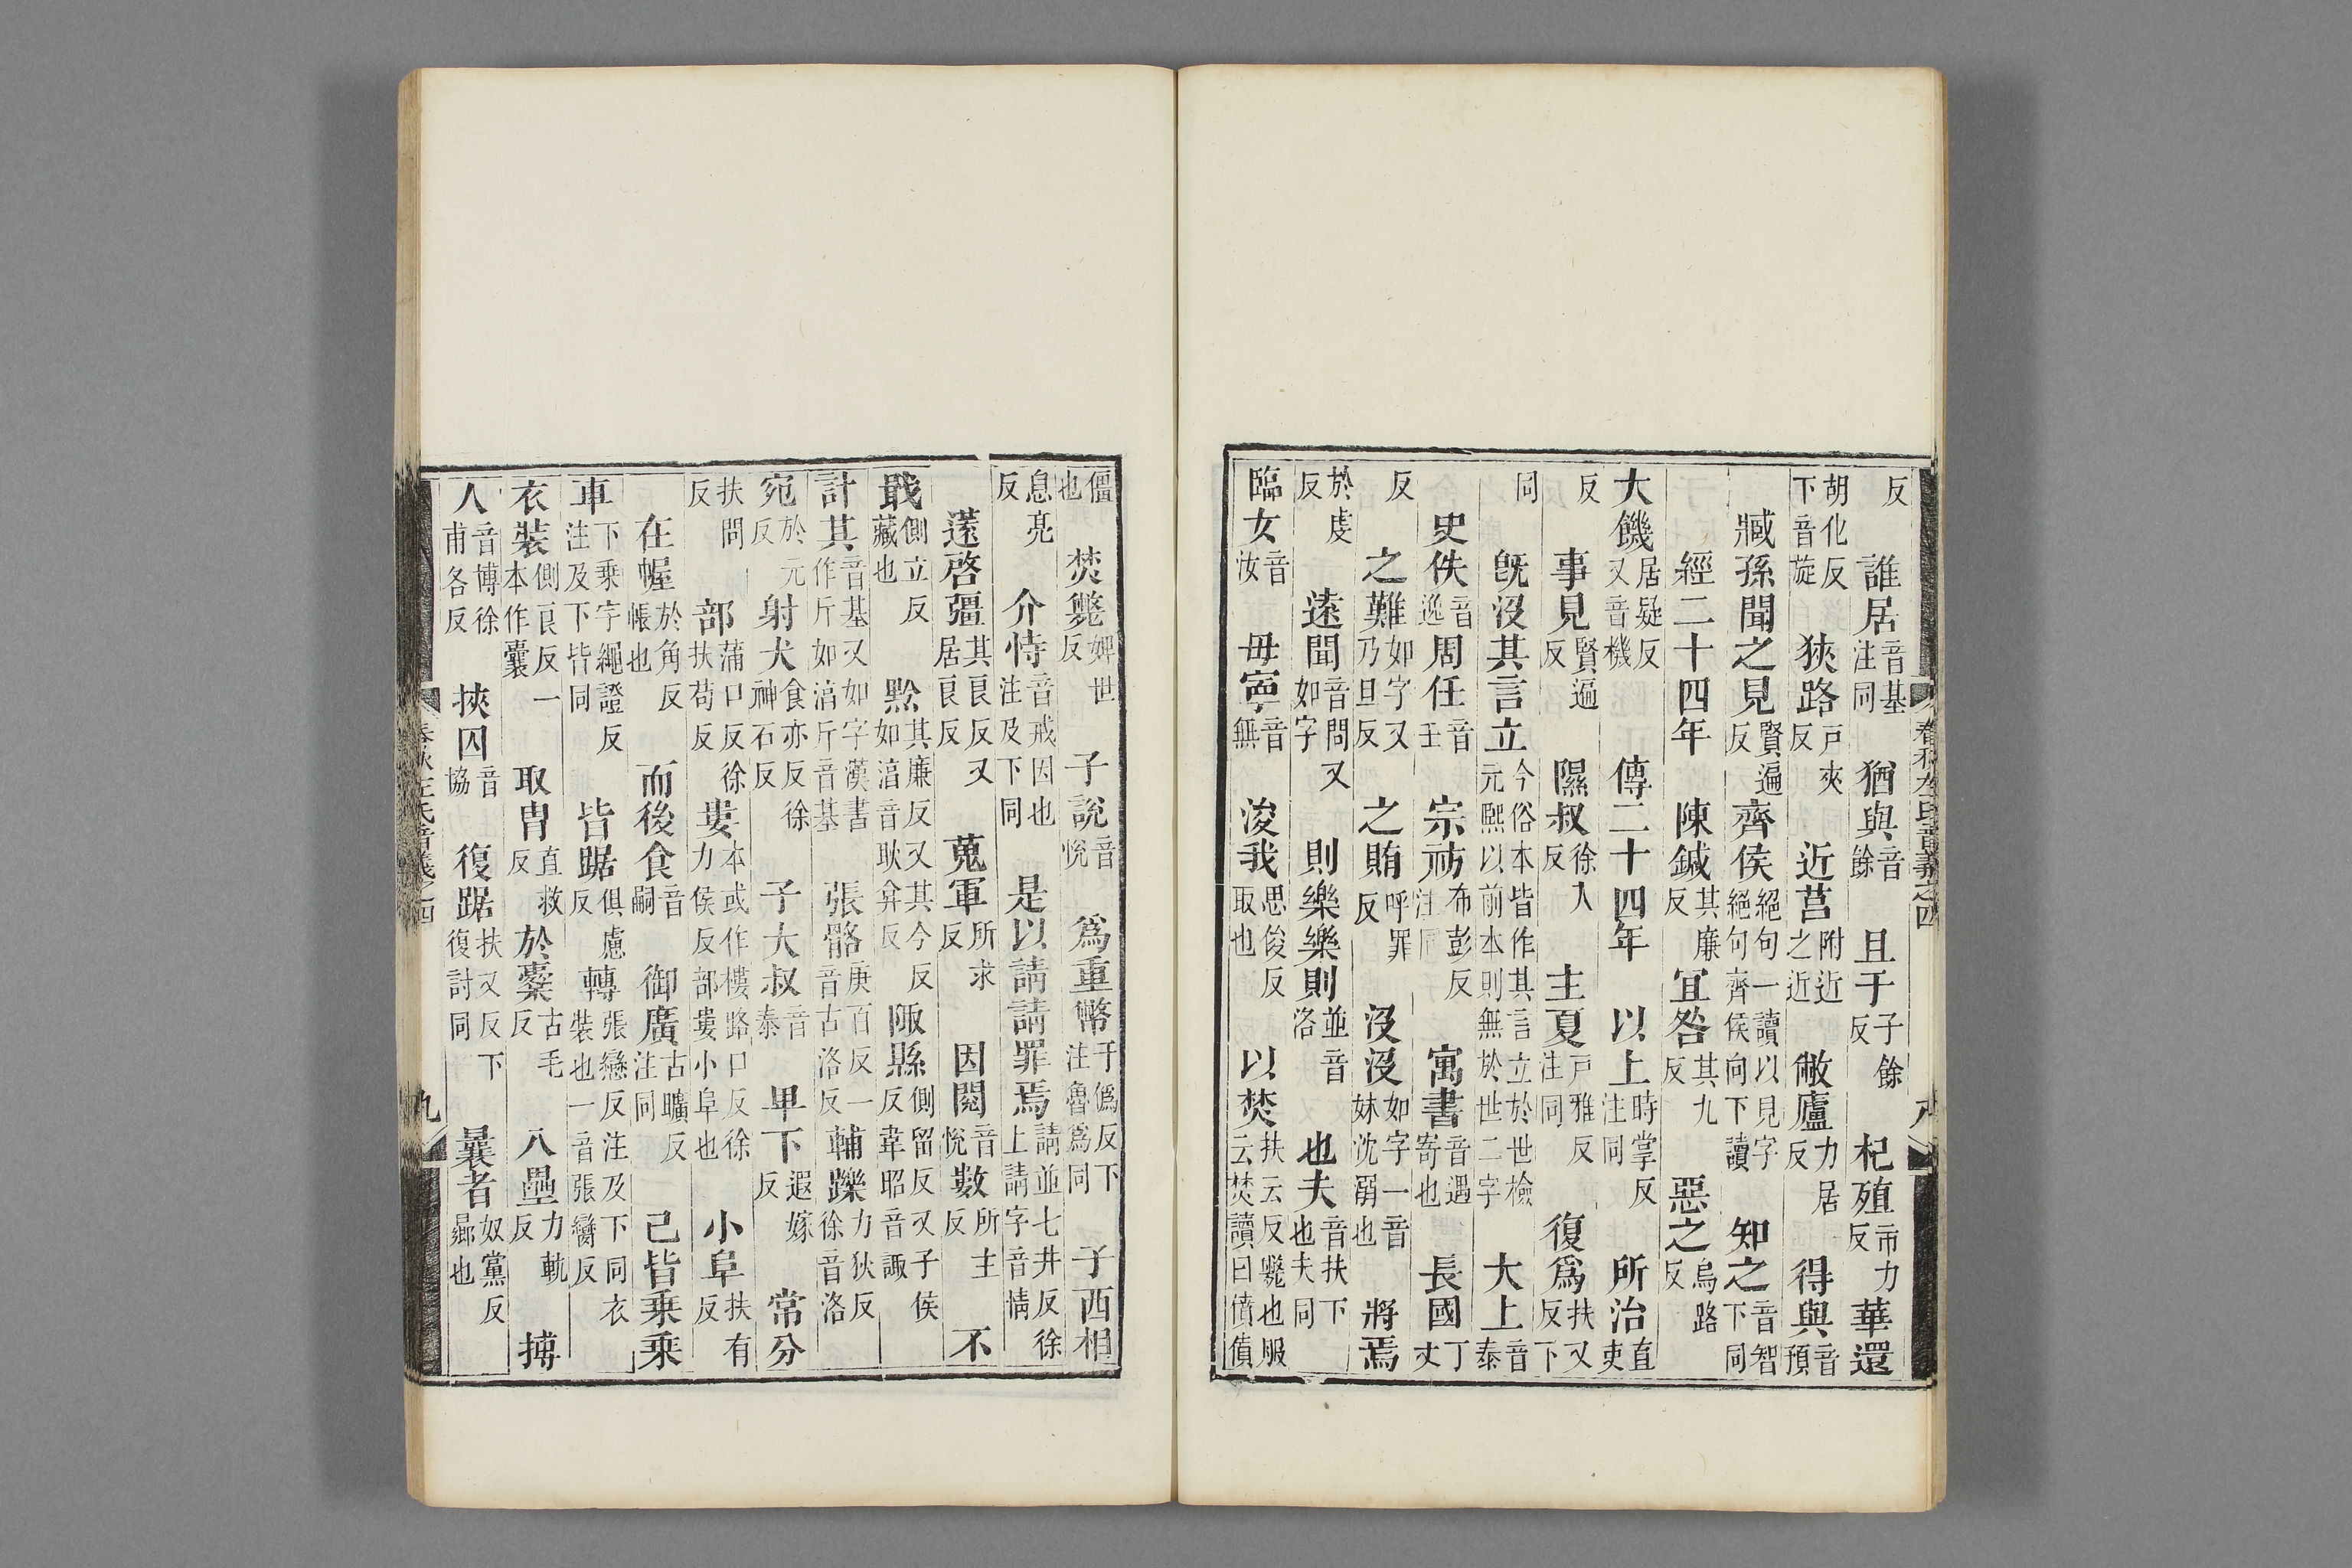 反　誰居音基注同　猶與音餘　且于子餘反　杞殖市力反華還
胡化反下音旋　狹路戸夾反　近莒附近之近　敝廬力居反　得與音預
臧孫聞之見賢遍反齊侯絕句一讀以見字絕句齊侯向下讀　知之音智下同
經二十四年　陳鍼其廉反宜咎其九反　惡之烏路反
大饑居疑反又音機　傳二十四年　以上時掌反注同　所治直吏
反　事見賢遍反　隰叔徐入反　主夏戸雅反注同　復爲扶又反下
同　旣沒其言立今俗本皆作其言立於世檢元熙以前本則無於世二字　大上音泰
史佚音逸周任音壬　宗祊布彭反注同　寓書音遇寄也　長國丁丈
反　之難如字又乃旦反　之賄呼罪反　沒沒如字一音妹沈溺也　將焉
於虔反　遠聞音問又如字　則樂樂則並音洛　也夫音扶下也夫同
臨女音汝　毋寧音無　浚我思俊反取也　以焚扶云反斃也服云焚讀曰僨僨
春秋左氏音義之四
八
僵也　焚斃婢世反　子說音悅　爲重幣于僞反下注魯爲同　子西相
息亮反　介恃音戒因也注及下同　是以請請罪焉請並七井反徐上請字音情
薳啓彊其良反又居良反　蒐軍所求反　因閱音悅數所主反　不
戢側立反藏也　黔其廉反又其今反如淳音耿弇反　陬縣側留反又子侯反韋昭音諏
計其音基又如字漢書作斤如淳斤音基　張骼庚百反一音古洛反　輔躒力狄反徐音洛
宛於元反　射犬食亦反徐神石反　子大叔音泰　卑下遐嫁反　常分
扶問反　部蒲口反徐扶苟反　婁本或作樓路口反徐力侯反部婁小阜也　小阜扶有反
在幄於角反帳也　而後食音嗣　御廣古曠反注同　己皆乘乘
車下乘字繩證反注及下皆同　皆踞俱慮反　轉張戀反注及下同衣裝也一音張臠反
衣裝側良反一本作囊　取冑直救反　於櫜古毛反　入壘力軌反　搏
人音博徐甫各反　挾囚音協　復踞扶又反下復討同　曩者奴黨反曏也
春秋左氏音義之四
九